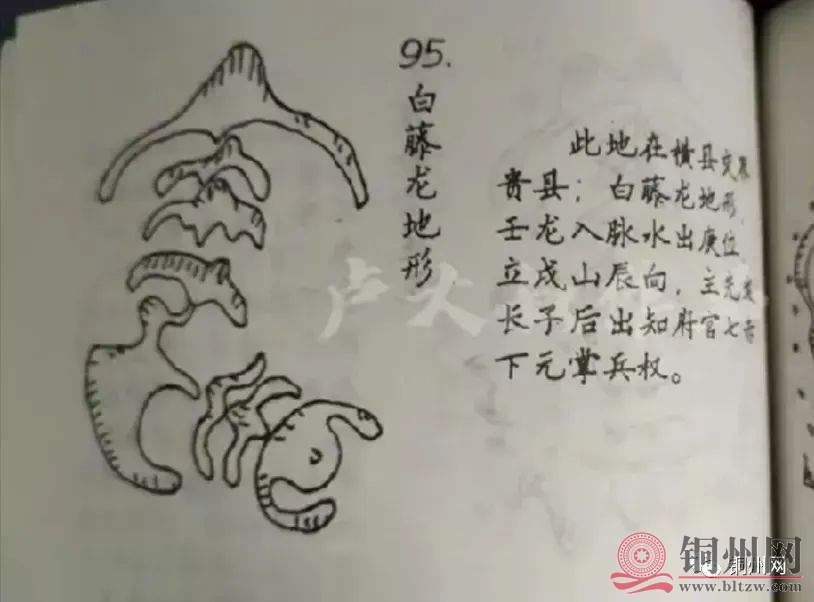 95.
白藤龙地形
此地在横县交界
贵县；白藤龙地形，
壬龙入脉水出庚位
立戌山辰向，主先发
长子后出知府官七吉
下元掌兵权。
铜州网
www.bltzw.com
铜州网